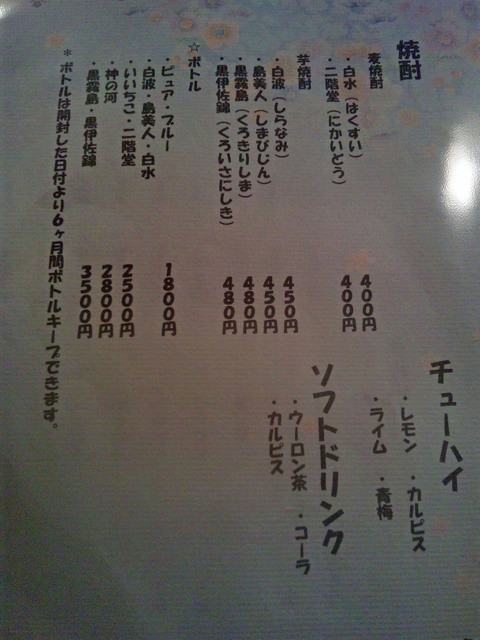 焼酎
麦焼酎
・白水(はくすい) 400円
・二階堂(にかいどう) 400円
芋焼酎
・白波(しらなみ) 450円
・島美人(しまびじん) 450円
・黒霧島(くろきりしま) 480円
・黒伊佐錦(くろいさにしき) 480円
☆ボトル
・ピュア・ブルー 1800円
・白波・島美人・白水
・いいちこ・二階堂 2500円
・神の河 2800円
・黒霧島・黒伊佐錦 3500円
*ボトルは開封した日付より6ヶ月間ボトルキープできます。
チューハイ
・レモン ・カルピス
・ライム ・青梅
ソフトドリンク
・ウーロン茶 ・コーラ
・カルピス